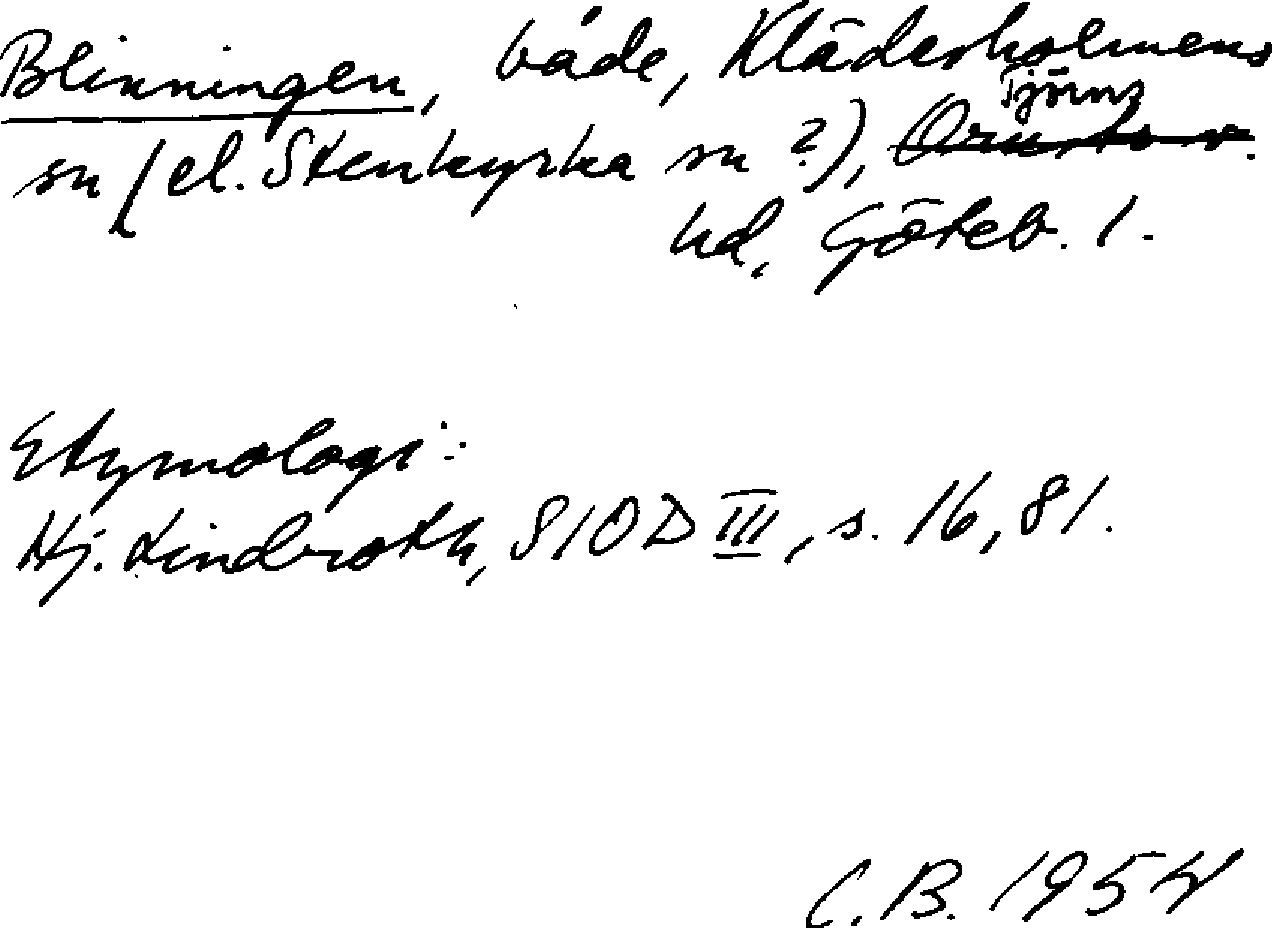 Blinningen, både, Klädesholmens
sn (el. Stenkyrka sn ?), Tjörns
hd, Göteb. l.
Etymologi:
Hj. Lindroth, SIOD III, s. 16, 81.
C.B. 1954